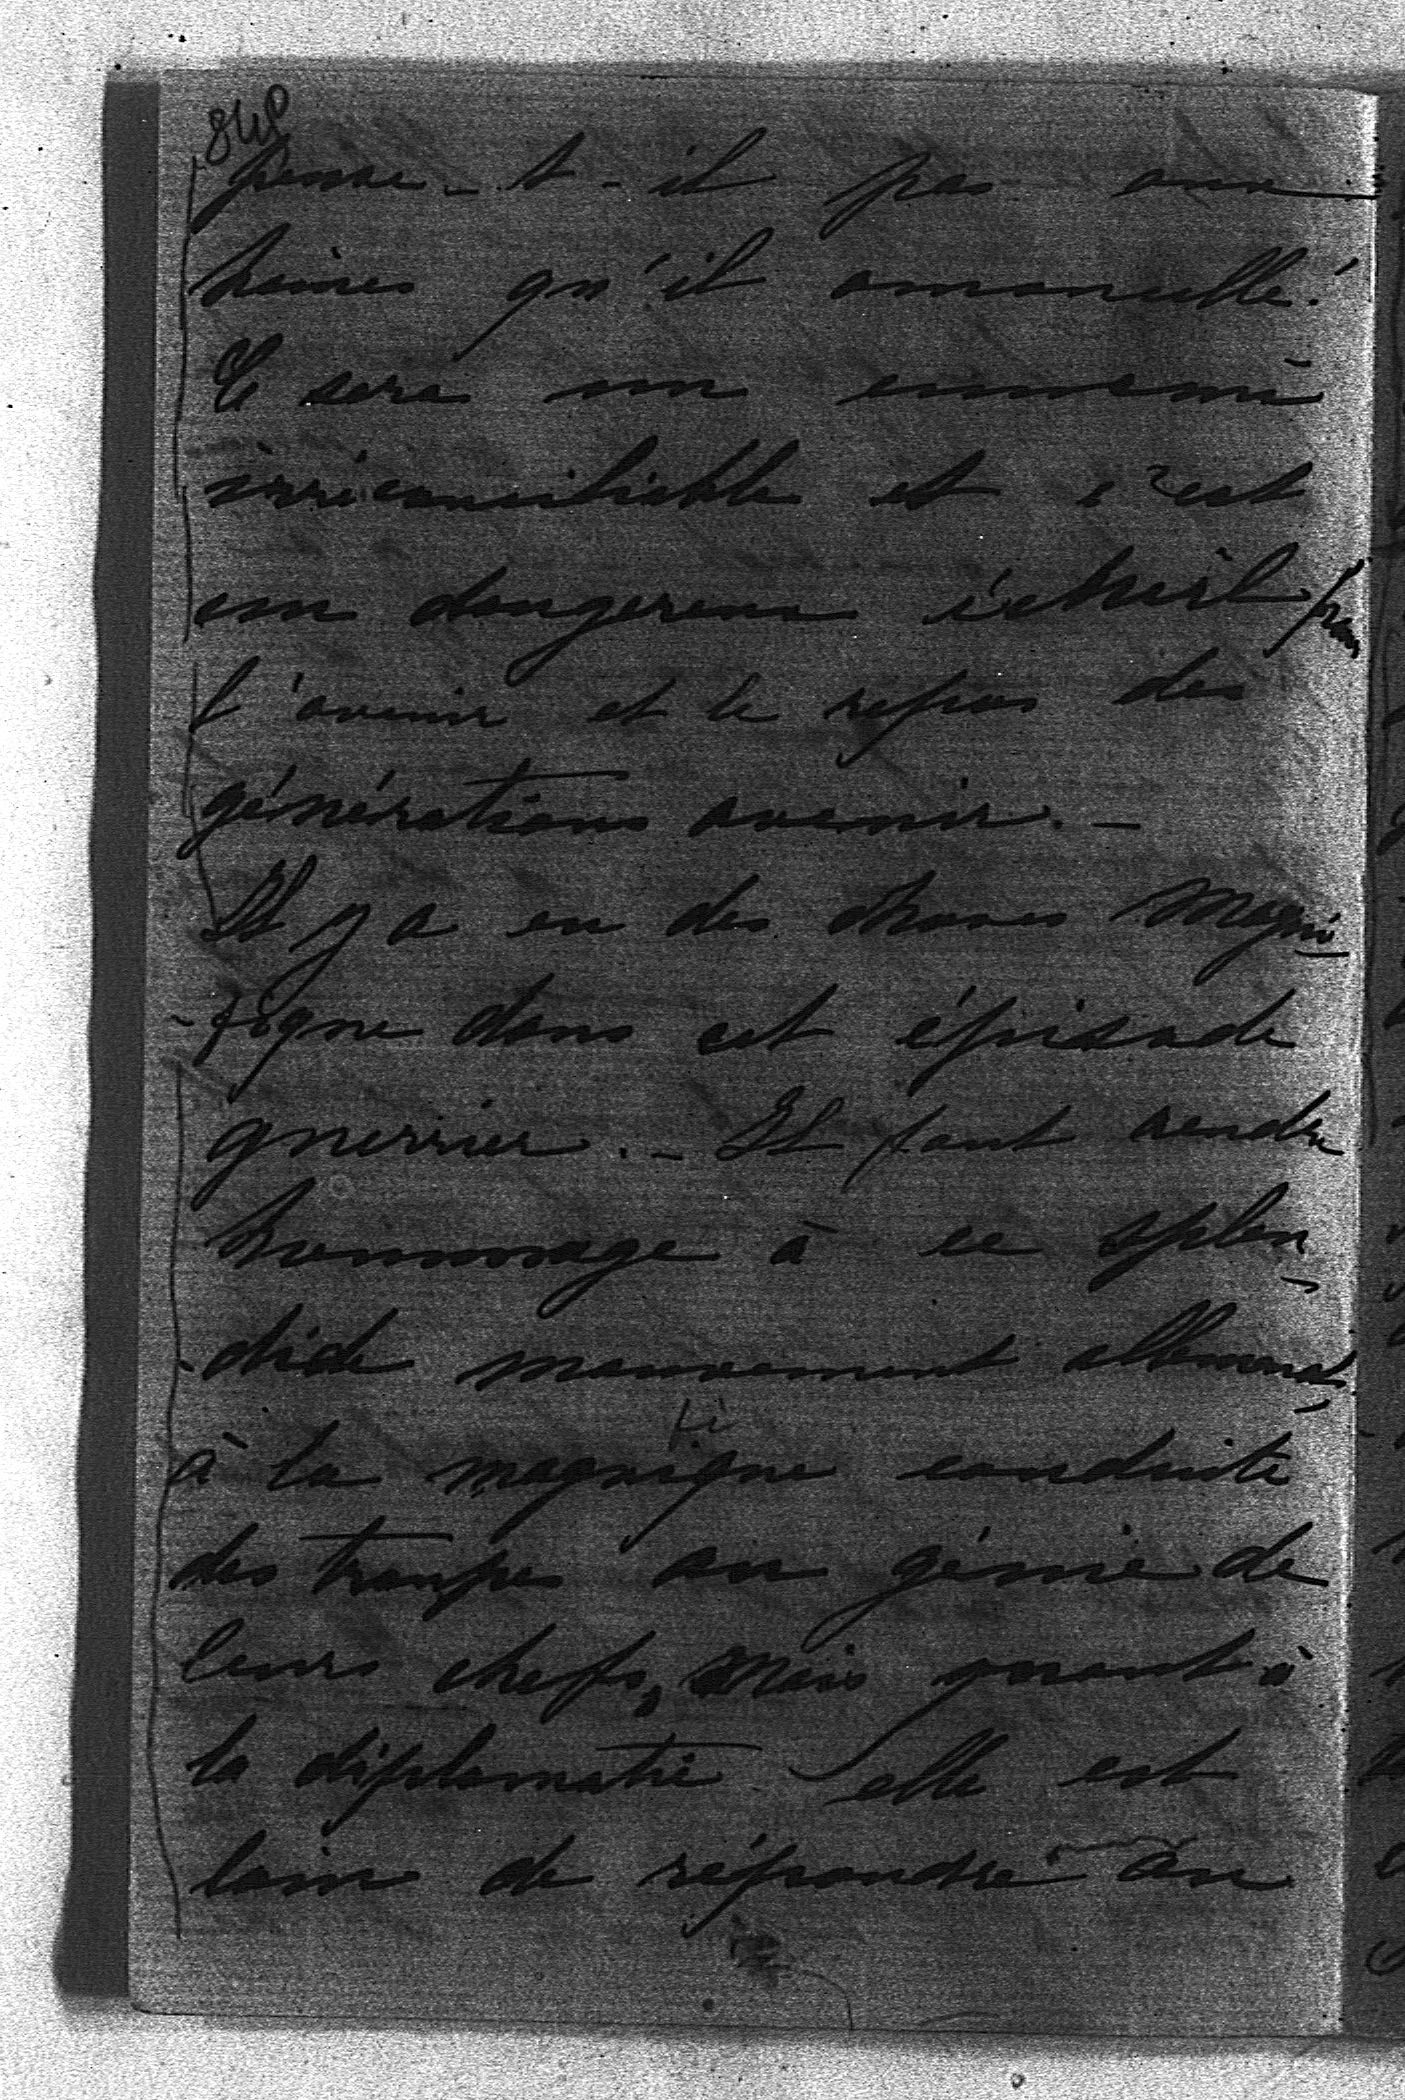 848
pense-t-il pas aux
haines qu'il amoncelle!
Ce sera un ennemi
irréconciliable et c'est
un dangereux écheuil pour
l'avenir et le repos des
générations avenir. -
Il y a eu des choses magni
-fique dans cet épisode
guerrier. - Il faut rendre
hommage à ce splen
-dide mouvement allemand
à la magnifique conduite
des troupes au génie de
leurs chefs, Mais quant à
la diplomatie elle est
loin de répondre au